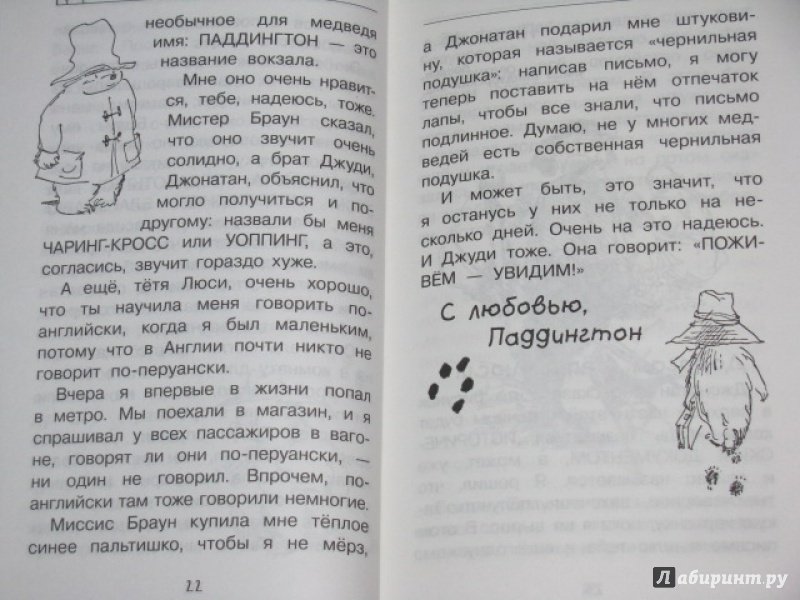 необычное для медведя
имя: ПАДДИНГТОН — это
название вокзала.
Мне оно очень нравит-
ся, тебе, надеюсь, тоже.
Мистер Браун сказал,
что оно звучит очень
солидно, а брат Джуди,
Джонатан, объяснил, что
могло получиться и по-
другому: назвали бы меня
ЧАРИНГ-КРОСС или УОППИНГ, а это,
согласись, звучит гораздо хуже.
А ещё, тётя Люси, очень хорошо,
что ты научила меня говорить по-
английски, когда я был маленьким,
потому что в Англии почти никто не
говорит по-перуански.
Вчера я впервые в жизни попал
в метро. Мы поехали в магазин, и я
спрашивал у всех пассажиров в ваго-
не, говорят ли они по-перуански, —
ни один не говорил. Впрочем, по-
английски там тоже говорили немногие.
Миссис Браун купила мне тёплое
синее пальтишко, чтобы я не мёрз,
22
а Джонатан подарил мне штукови-
ну, которая называется «чернильная
подушка»: написав письмо, я могу
теперь поставить на нём отпечаток
лапы, чтобы все знали, что письмо
подлинное. Думаю, не у многих мед-
ведей есть собственная чернильная
подушка.
И может быть, это значит, что
я останусь у них не только на не-
сколько дней. Очень на это надеюсь.
И Джуди тоже. Она говорит: «ПОЖИ-
ВЁМ — УВИДИМ!»
С любовью,
Паддингтон
Лабиринт.ру